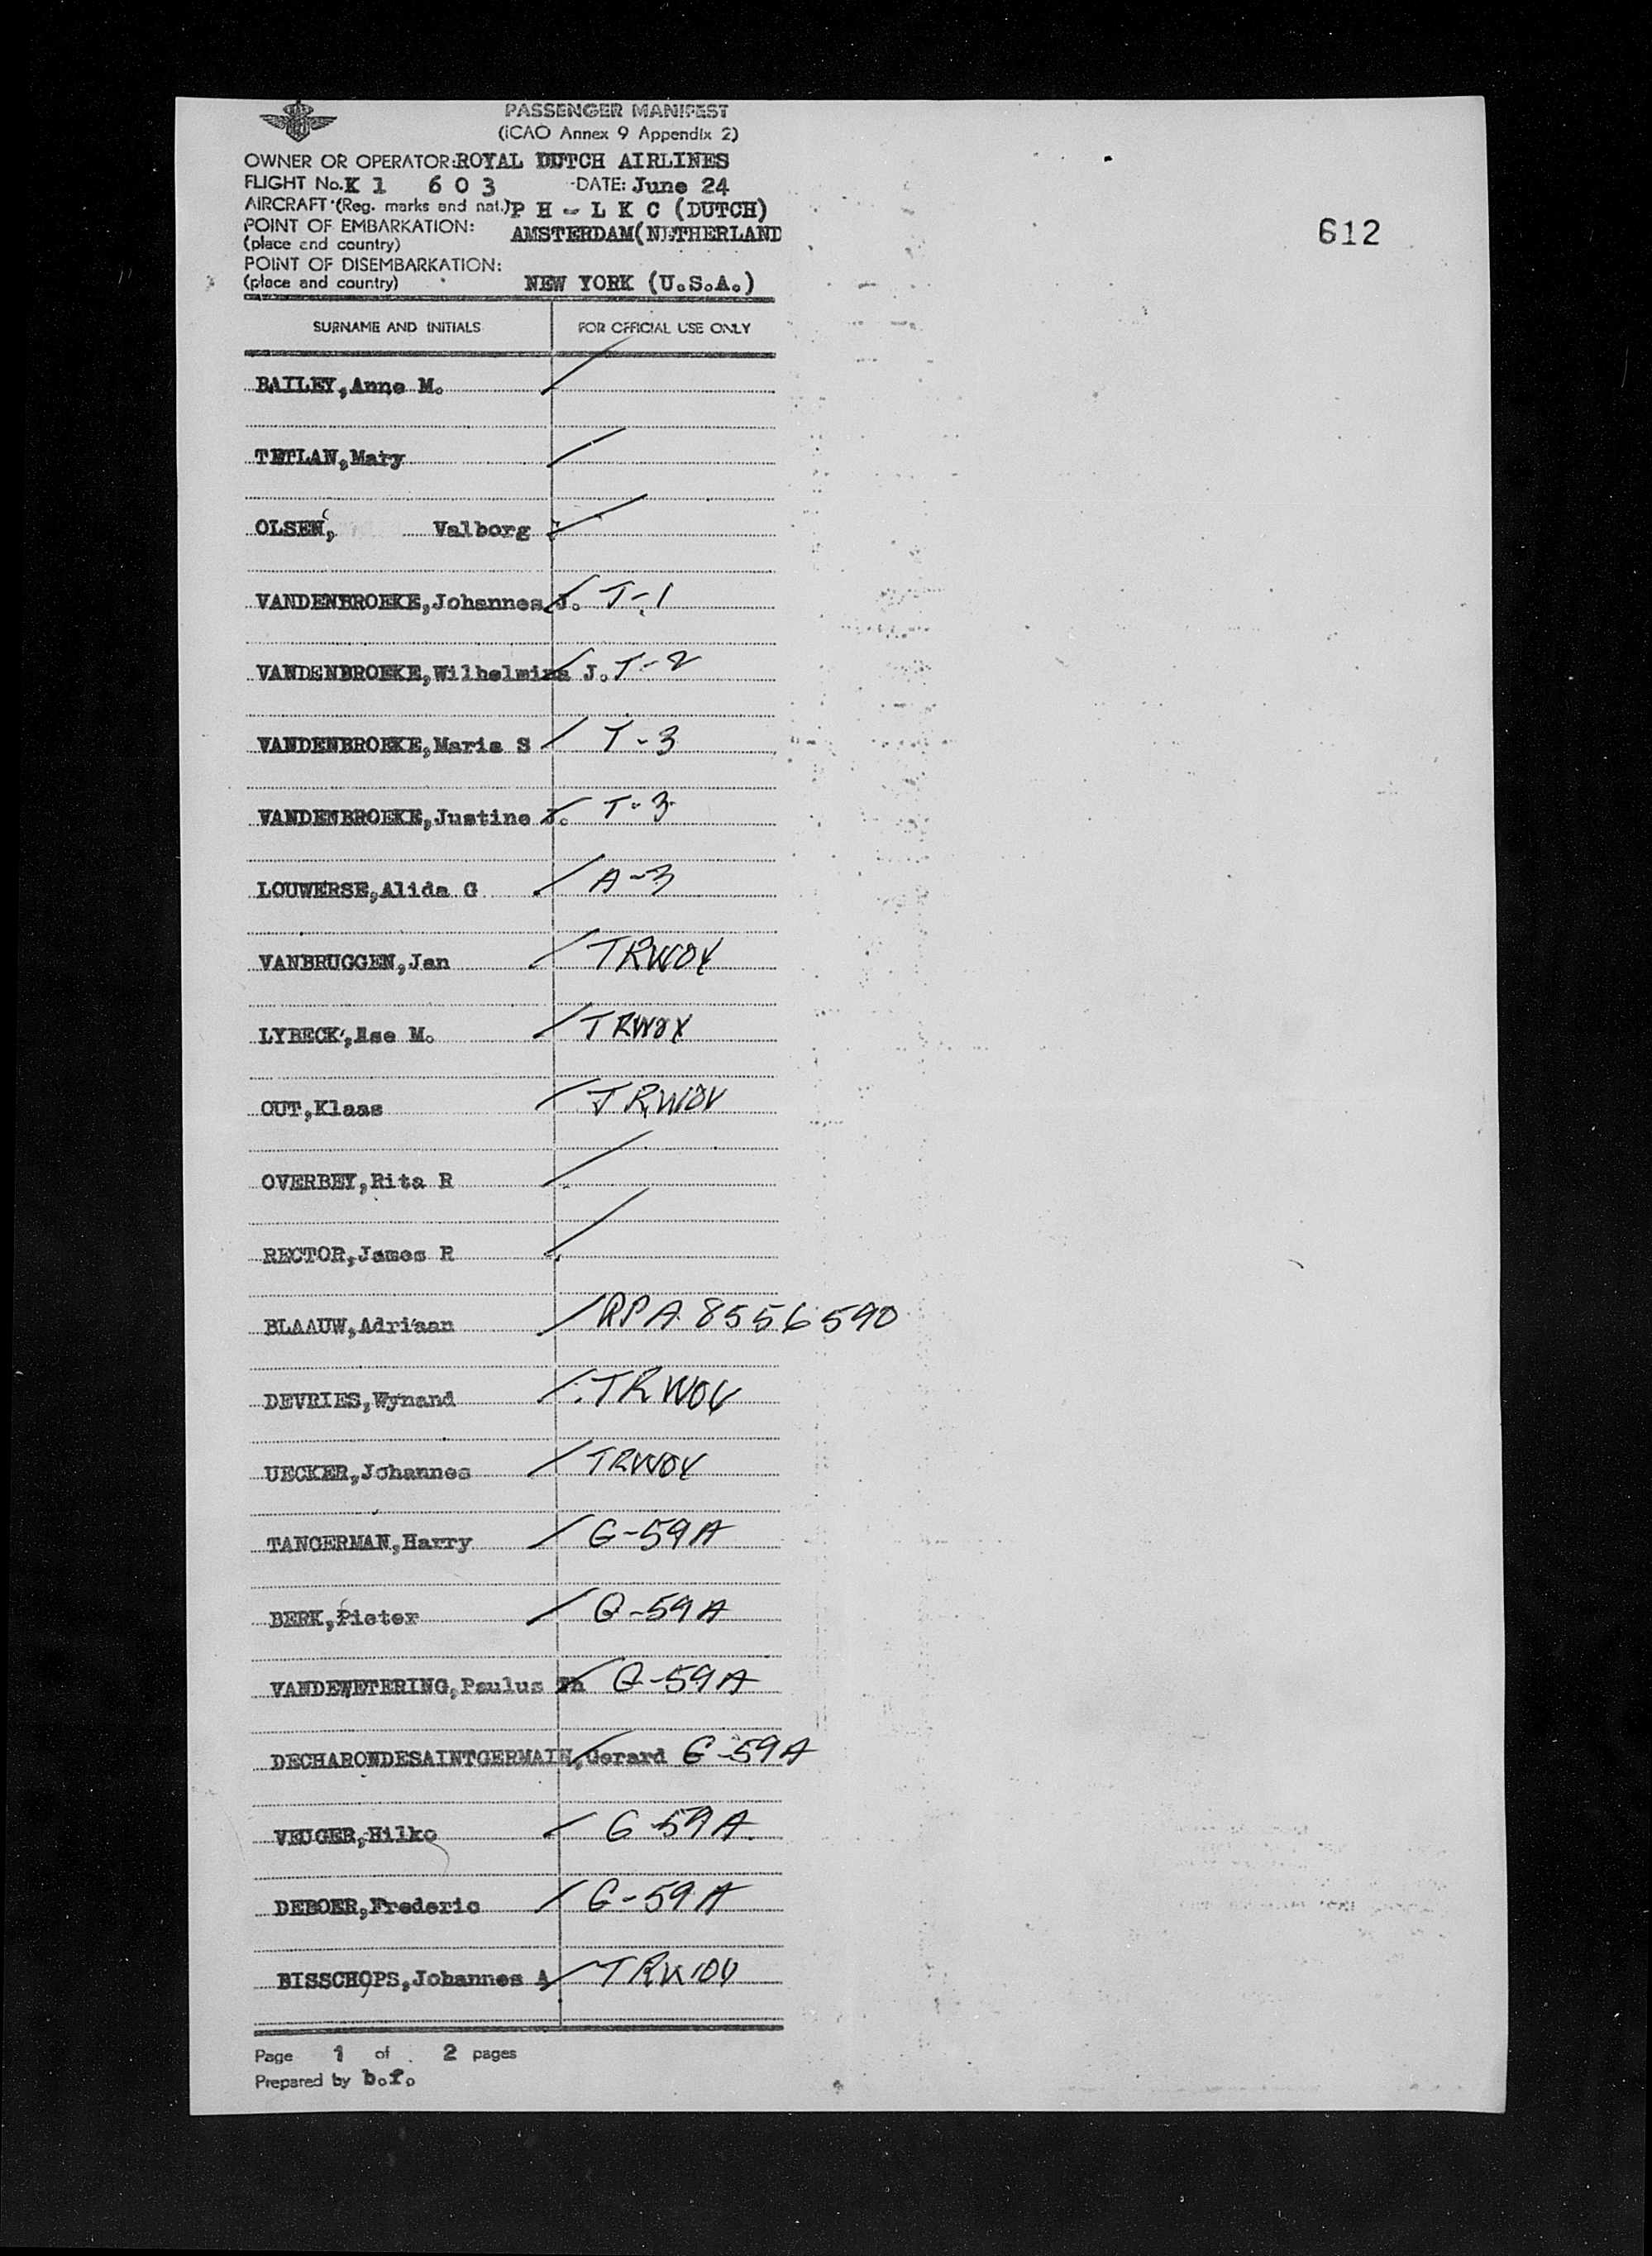 PASSENGER MANIFEST
(ICAO Annex 9 Appendix 2)
OWNER OR OPERATOR: ROYAL DUTCH AIRLINES
FLIGHT No. K 1 6 0 3 DATE: June 24
AIRCRAFT (Reg. marks and nat.) P H - L K C (DUTCH)
POINT OF EMBARKATION: AMSTERDAM(NETHERLAND
(place and country)
612
POINT OF DISEMBARKATION:
(place and country) NEW YORK (U.S.A.)
SURNAME AND INITIALS FOR OFFICIAL USE ONLY
BAILEY,Anne M.
TETLAN,Mary
OLSEN, Valborg
VANDENBROEKE,Johannes J. T-1
VANDENBROEKE,Wilhelmina J. T-2
VANDENBROEKE,Maria S T-3
VANDENBROEKE,Justine J. T-3
LOUWERSE,Alida G A-3
VANBRUGGEN,Jan TRWOV
LYBECK,Ase M. TRWOV
OUT,Klaas TRWOV
OVERBEY,Rita R
RECTOR,James R
BLAAUW,Adriaan RPA 8556590
DEVRIES,Wynand TRWOV
UECKER,Johannes TRWOV
TANGERMAN,Harry G-59A
BERK,Pieter G-59A
VANDEWETERING,Paulus Th G-59A
DECHARONDESAINTGERMAIN,Gerard G-59A
VEUGER,Hilko G-59A
DEBOER,Frederic G-59A
BISSCHOPS,Johannes A TRWOV
Page 1 of 2 pages
Prepared by b.f.